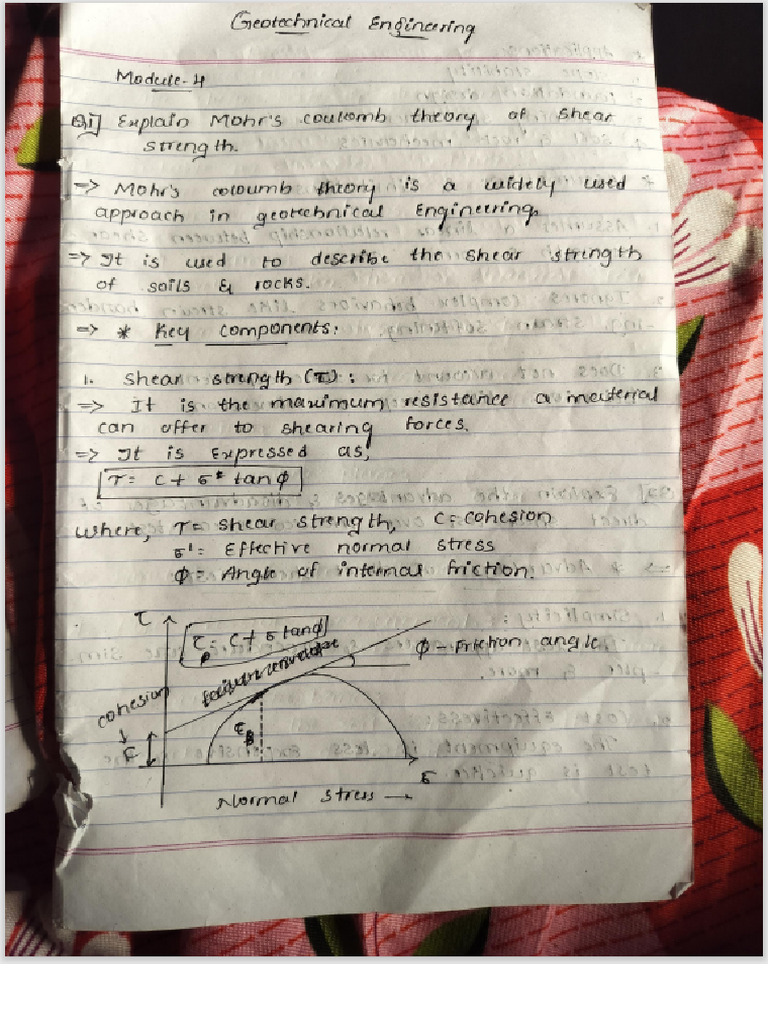 Geotechnical Engineering
Module-4
Q1] Explain Mohr's coulomb theory of shear
strength.
=> Mohr's coloumb theory is a widely used
approach in geotechnical Engineering.
=> It is used to describe the shear strength
of soils & rocks.
=> * Key components:
1. Shear strength (τ) :
=> It is the maximum resistance a material
can offer to shearing forces.
=> It is Expressed as,
τ = c + σ' tanϕ
where, τ = shear strength, C = cohesion
σ' = Effective normal stress
ϕ = Angle of internal friction.
τ
τ = c + σ tanϕ
ϕ - Friction angle
cohesion
↓
c
σ
Normal stress →